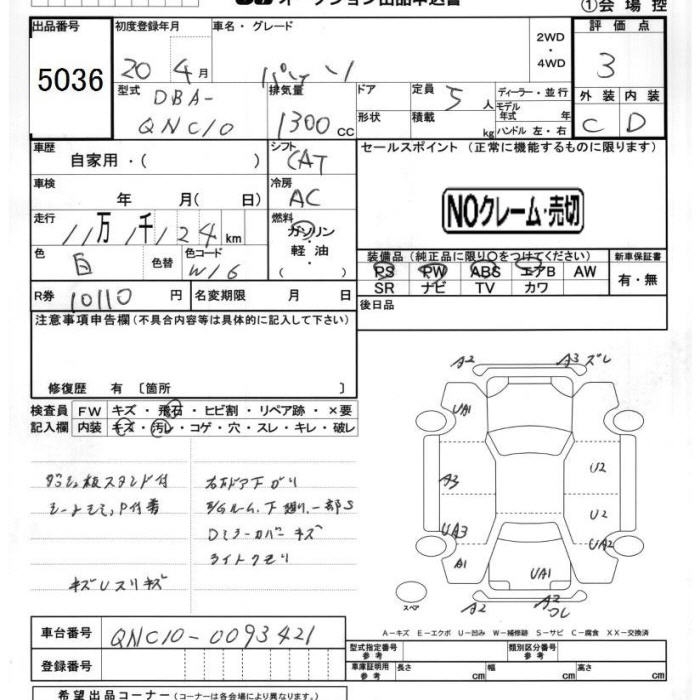 オークション出品申込書
①会場控
出品番号 初度登録年月 車名・グレード 評価点
5036 20 4月 パッソ 2WD・4WD 3
型式 DBA-QNC10 排気量 1300 cc ドア 定員 5人 ディーラー・並行 外装 内装
形状 積載 kg モデル年式 年 ハンドル 左・右 C D
車歴 自家用・( ) シフト CAT セールスポイント (正常に機能するものに限ります)
車検 年 月( 日) 冷房 AC
NOクレーム・売切
走行 11万1千124km 燃料 ガソリン・軽油・( )
色 白 色替 色コード W16
装備品 (純正品に限り○をつけてください) 新車保証書
PS PW ABS エアB AW 有・無
SR ナビ TV カワ
R券 10110円 名変期限 月 日 後日品
注意事項申告欄(不具合内容等は具体的に記入して下さい)
修復歴 有 [箇所 ]
検査員 FW キズ・飛石・ヒビ割・リペア跡・×要
記入欄 内装 キズ・汚レ・コゲ・穴・スレ・キレ・破レ
A2 A3 ズレ
UA1
A3 U2
U2
UA3 UA2
A1 UA1
スペア A2 A2
ダッシュ板スタンド付 右ドア下ガリ
シートモミ,P付着 下廻り一部S
Dミラーカバーキズ
ライトクモリ
キズUスリキズ
A-キズ E-エクボ U-凹み W-補修跡 S-サビ C-腐食 XX-交換済
車台番号 QNC10-0093421
型式指定番号 参考 類別区分番号 参考
登録番号 車庫証明用 参考 長さ cm 幅 cm 高さ cm
希望出品コーナー(コーナーは各会場により異なります。)